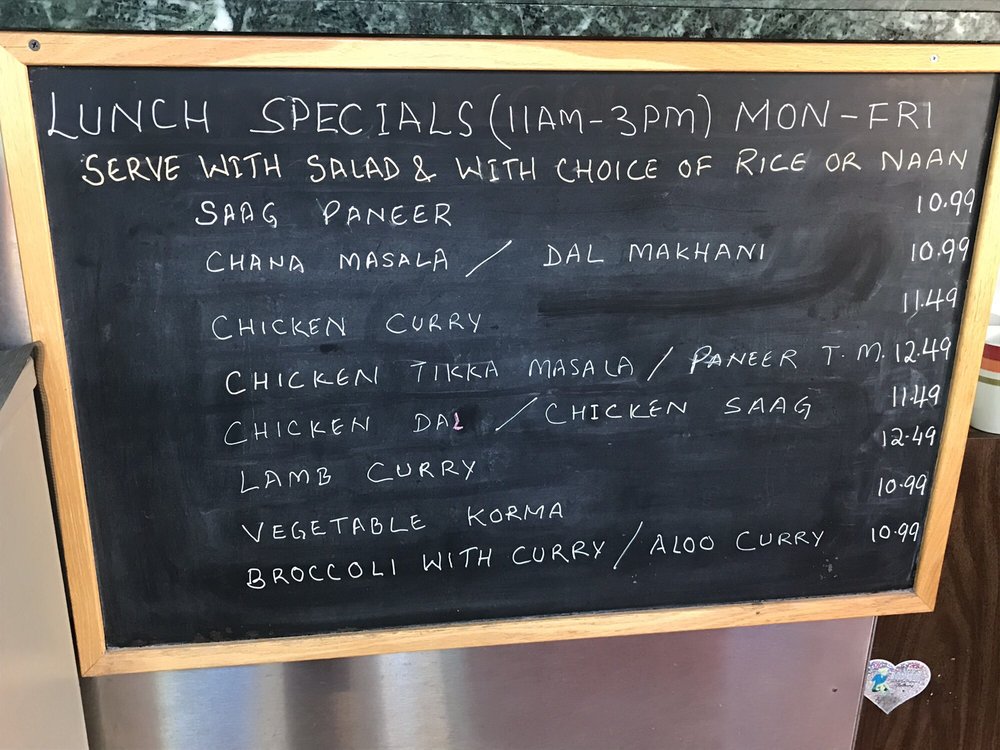 LUNCH SPECIALS (11AM-3PM) MON-FRI
SERVE WITH SALAD & WITH CHOICE OF RICE OR NAAN
SAAG PANEER 10.99
CHANA MASALA / DAL MAKHANI 10.99
CHICKEN CURRY 11.49
CHICKEN TIKKA MASALA / PANEER T.M. 12.49
CHICKEN DAL / CHICKEN SAAG 11.49
LAMB CURRY 12.49
VEGETABLE KORMA 10.99
BROCCOLI WITH CURRY / ALOO CURRY 10.99